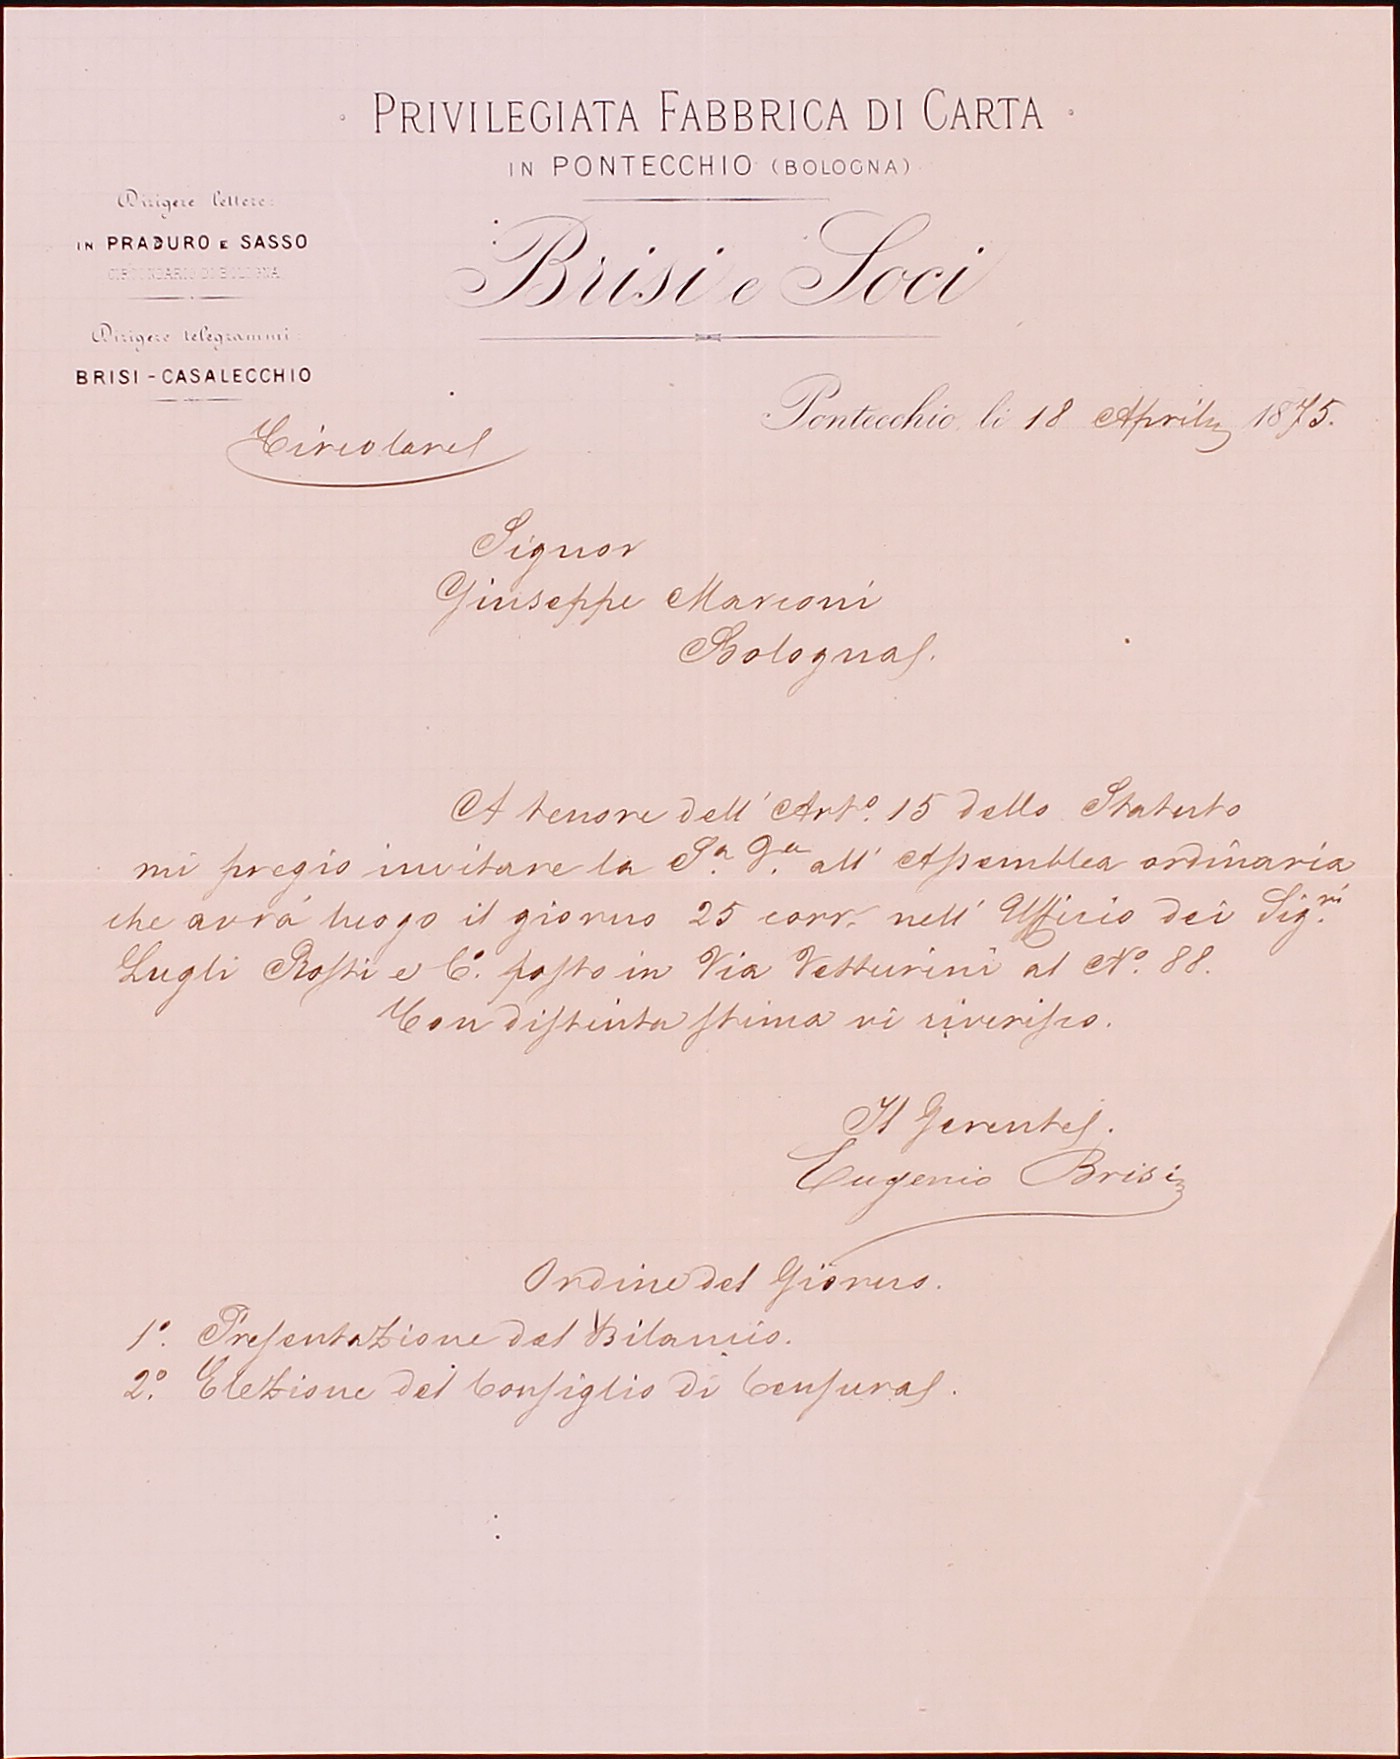 PRIVILEGIATA FABBRICA DI CARTA
IN PONTECCHIO (BOLOGNA)
Brisi e Soci
Dirigere lettere:
IN PRADURO E SASSO
CIRCONDARIO DI BOLOGNA
Dirigere telegrammi:
BRISI - CASALECCHIO
Pontecchio, li 18 Aprile 1875.
Circolare
Signor
Giuseppe Marconi
Bologna.
A tenore dell' Arto. 15 dello Statuto
mi pregio invitare la S.a all' Assemblea ordinaria
che avrà luogo il giorno 25 corr. nell' Ufficio dei Sig.ri
Lugli Rossi e C.o posto in Via Vetturini al No. 88.
Con distinta stima vi riverisco.
Il Gerente.
Eugenio Brisi
Ordine del Giorno.
1o. Presentazione del Bilancio.
2o. Elezione del Consiglio di Censura.